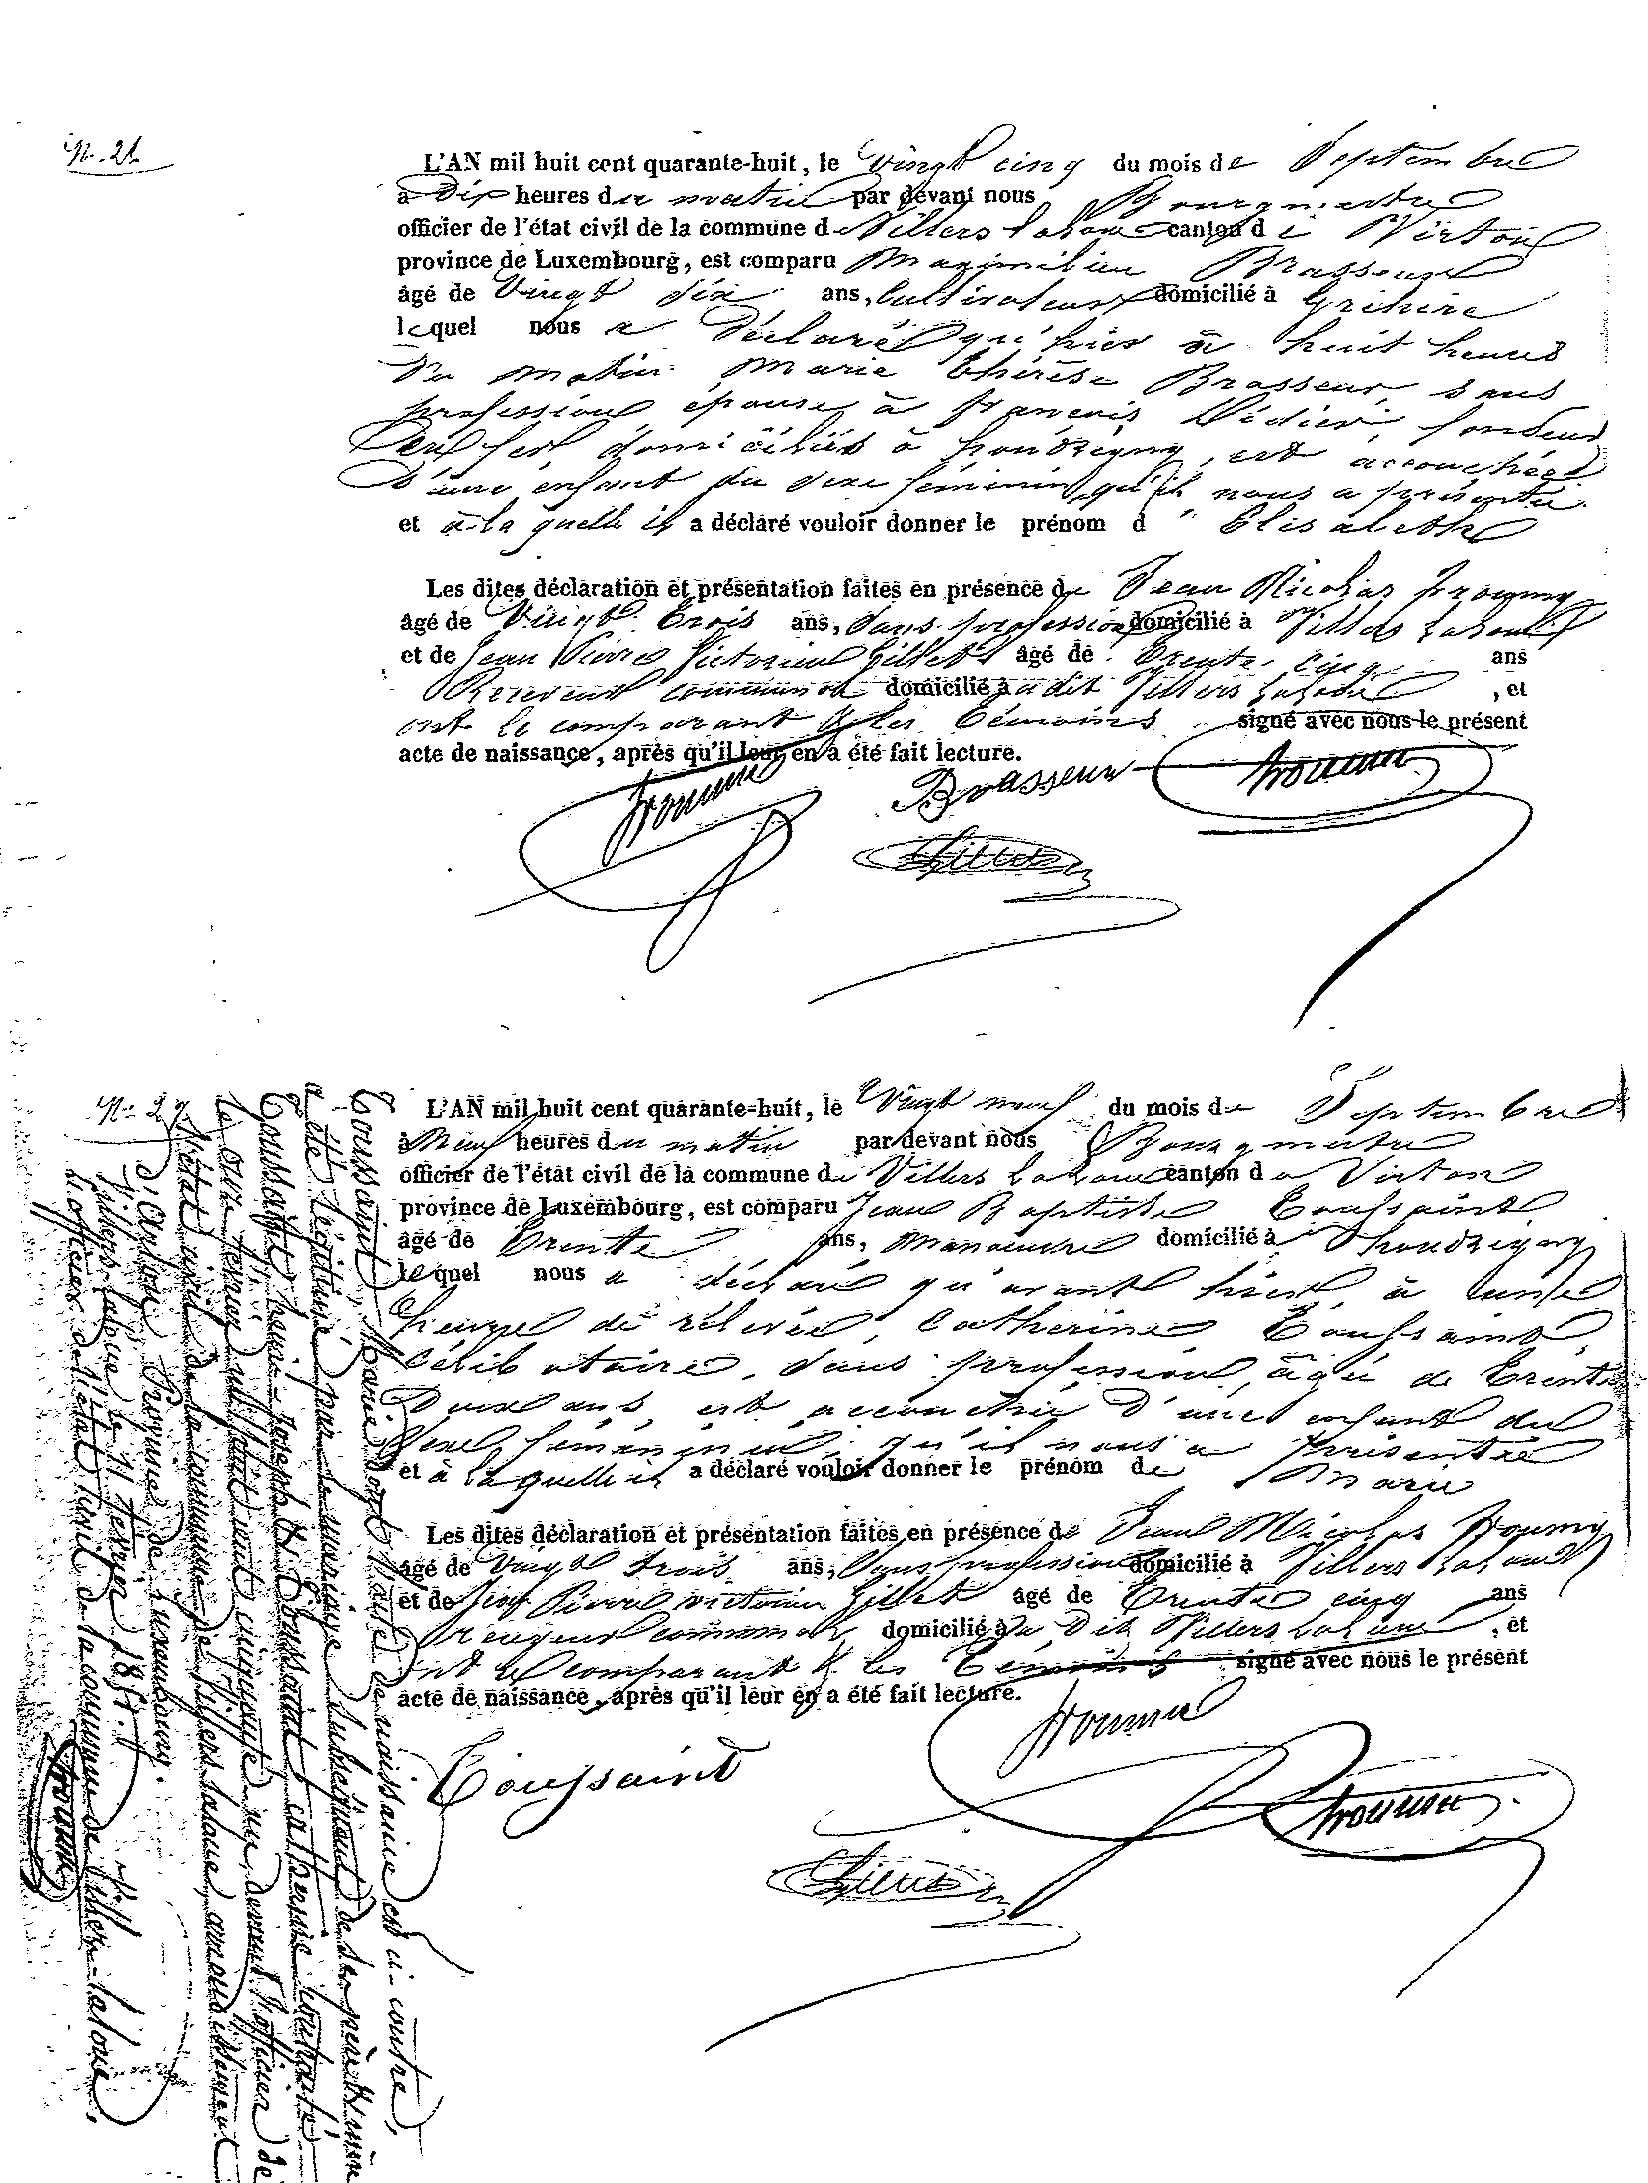 N.° 21
L'AN mil huit cent quarante-huit, le vingt cinq du mois de Septembre
à Dix heures du matin par devant nous Bourgmestre
officier de l'état civil de la commune de Villers laloue canton de Virton
province de Luxembourg, est comparu Maximilien Brasseur
âgé de vingt six ans, Cultivateur domicilié à Grihire
lequel nous a déclaré qu'hier à huit heures
du matin Marie thérèse Brasseur, sans
profession épouse à françois Dédier,
domiciliés à houdrigny, est accouchée
d'une enfant du sexe féminin, qu'il nous a présenté
et à la quelle il a déclaré vouloir donner le prénom d'Elisabeth
Les dites déclaration et présentation faites en présence de Jean Nicolas froumy
âgé de Vingt trois ans, Sans profession domicilié à Villers laloue
et de Jean Pierre Victorien Gillet âgé de trente cinq ans
Receveur communal domicilié audit Villers laloue, et
ont le comparant & les témoins signé avec nous le présent
acte de naissance, après qu'il leur en a été fait lecture.
Brasseur
N.° 27
L'AN mil huit cent quarante-huit, le Vingt neuf du mois de Septembre
à Neuf heures du matin par devant nous Bourgmestre
officier de l'état civil de la commune de Villers laloue canton de Virton
province de Luxembourg, est comparu Jean Baptiste Toussaint
âgé de trente ans, manoeuvre domicilié à houdrigny
lequel nous a déclaré qu'avant hier, à
heure de relevée, Catherine Toussaint,
célibataire, sans profession, âgée de trente
Deux ans, est accouchée d'une enfant du
sexe féminin, qu'il nous a présentée
et à laquelle il a déclaré vouloir donner le prénom de Marie
Les dites déclaration et présentation faites en présence de Jean Nicolas froumy
âgé de Vingt trois ans, Sans profession domicilié à Villers laloue
et de Jean Pierre victorien Gillet âgé de trente cinq ans
receveur communal domicilié au Dit Villers laloue, et
ont le comparant & les témoins signé avec nous le présent
acte de naissance, après qu'il leur en a été fait lecture.
Toussaint
Toussaint, Marie dont l'acte de naissance est ci-contre,
a été légitimée par le mariage subséquent de ses père et mère
Toussaint, Joseph et Toussaint Catherine contracté
le onze février mil huit cent cinquante un, devant l'officier de
l'état civil de la commune de Villers laloue arrondissement
d'Arlon Province de Luxembourg.
Villers-laloue le 11 février 1851.
L'officier de l'état civil de la commune de Villers-laloue.